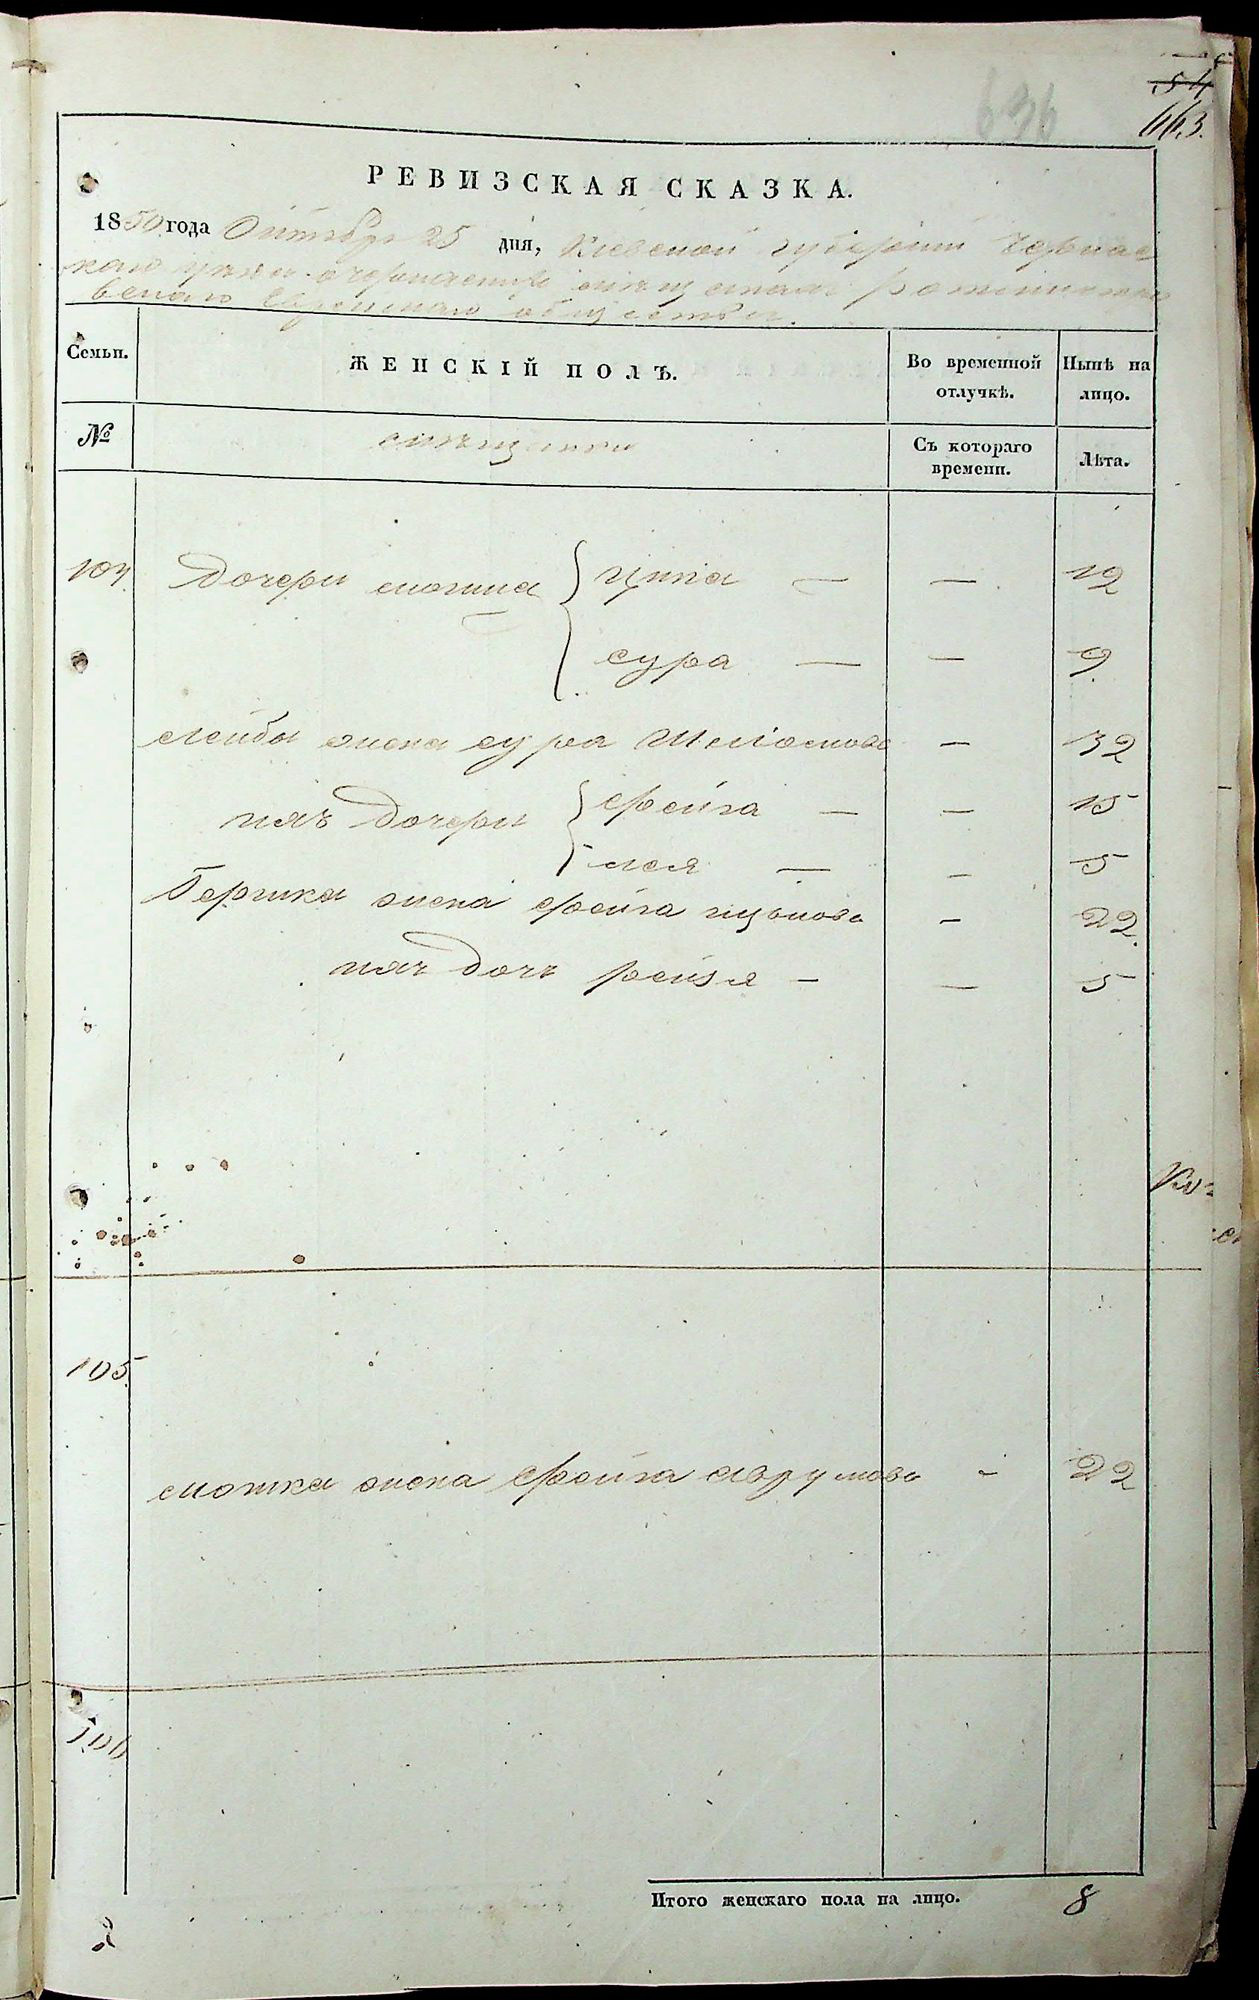 54
663.
636
РЕВИЗСКАЯ СКАЗКА.
1850 года Октября 25 дня, Киевской губернии Черкас
скаго уезда о мещанахъ
Еврейскаго общества.
Семьи. ЖЕНСКІЙ ПОЛЪ. Во временной отлучкѣ. Нынѣ на лицо.
№ мещанки Съ котораго времени. Лѣта.
104. Дочери мошка { Ципа — — 12
сура — — 9.
лейбы жена сура Шлiомова — 32
ихъ Дочери { фейга — — 15
лея — — 5
Гершка жена фейга ицькова — 22.
ихъ дочь рейзя — — 5
105.
мошка жена фейга аврумова - 22
106
Итого женскаго пола на лицо. 8